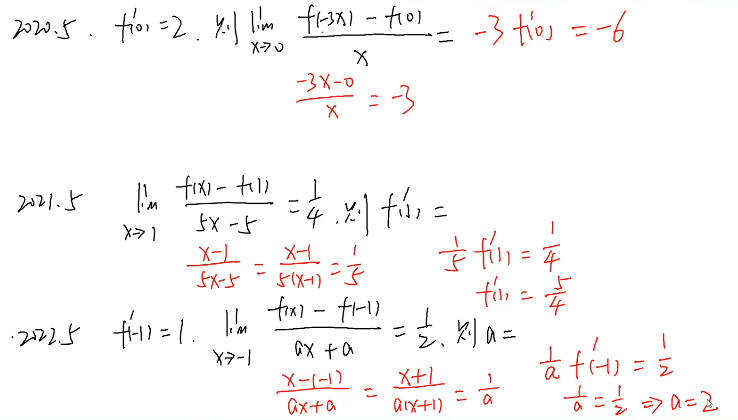 2020.5. f'(0)=2. 则 lim_{x→0} \frac{f(-3x)-f(0)}{x} = -3f'(0) = -6
\frac{-3x-0}{x} = -3
2021.5 lim_{x→1} \frac{f(x)-f(1)}{5x-5} = \frac{1}{4}. 则 f'(1) =
\frac{x-1}{5x-5} = \frac{x-1}{5(x-1)} = \frac{1}{5}
\frac{1}{5} f'(1) = \frac{1}{4}
f'(1) = \frac{5}{4}
2022.5 f'(-1)=1. lim_{x→-1} \frac{f(x)-f(-1)}{ax+a} = \frac{1}{2}. 则 a=
\frac{x-(-1)}{ax+a} = \frac{x+1}{a(x+1)} = \frac{1}{a}
\frac{1}{a} f'(-1) = \frac{1}{2}
\frac{1}{a} = \frac{1}{2} ⇒ a=2